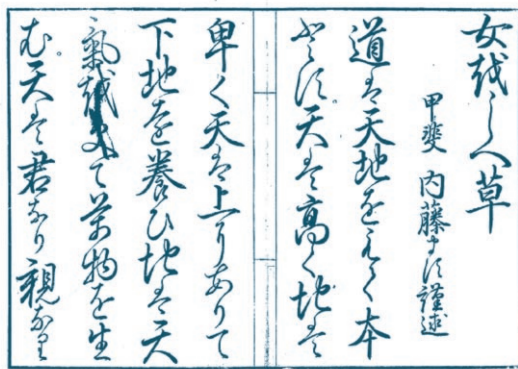 女をしへ草
甲斐 内藤ます謹述
道は天地をもて本
とす天は高く地は
卑く天は上にありて
下地を養ひ地は天
氣を受て萬物を生
む天は君なり親なり